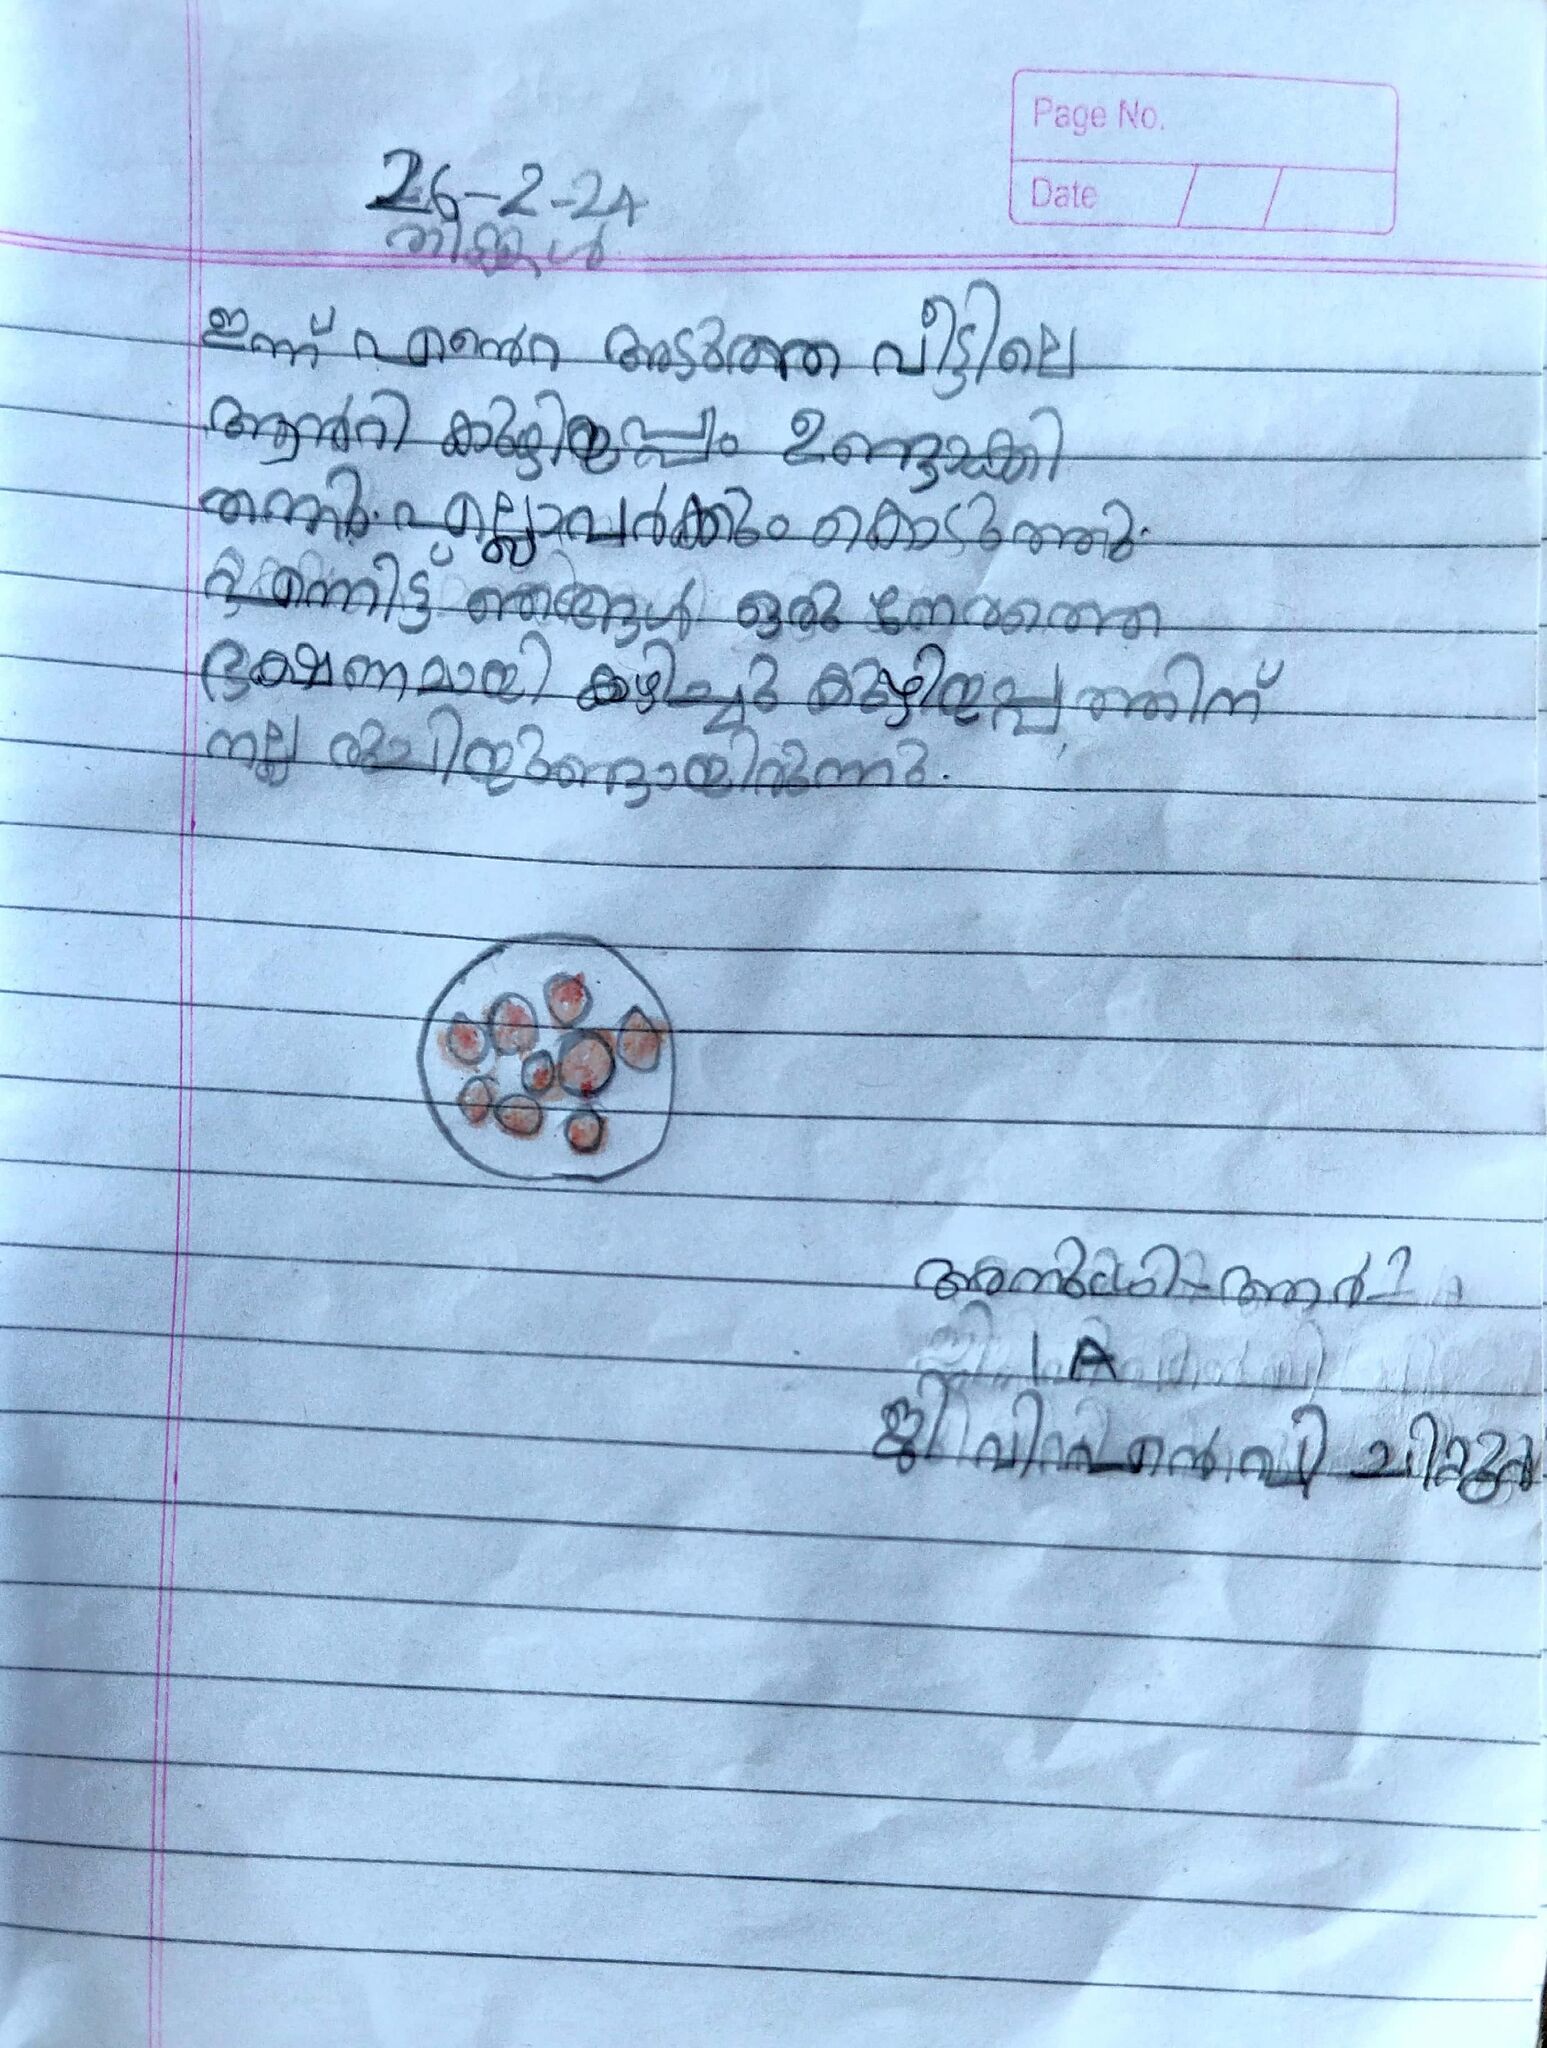 Page No.
Date
26-2-24
തിങ്കൾ
ഇന്ന് എന്റെ അടുത്ത വീട്ടിലെ
ആന്റി കുഴിയപ്പം ഉണ്ടാക്കി
തന്നു. എല്ലാവർക്കും കൊടുത്തു.
എന്നിട്ട് ഞങ്ങൾ ഒരു നേരത്തെ
ഭക്ഷണമായി കഴിച്ചു കുഴിയപ്പത്തിന്
നല്ല രുചിയുണ്ടായിരുന്നു.
1 A
ജി വി എൽ പി ചിറ്റൂർ